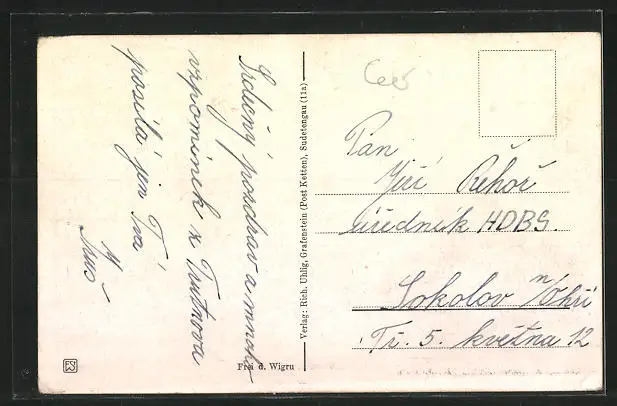 Srdečný pozdrav a mnoho
vzpomínek z Trutnova
posílá jen Tvá
Verlag: Rich. Uhlig, Grafenstein (Post Ketten), Sudetengau (11a)
Frei d. Wigru
Pan
Jiří Řehoř
úředník HDBS.
Sokolov n/Ohří
Tř. 5. května 12